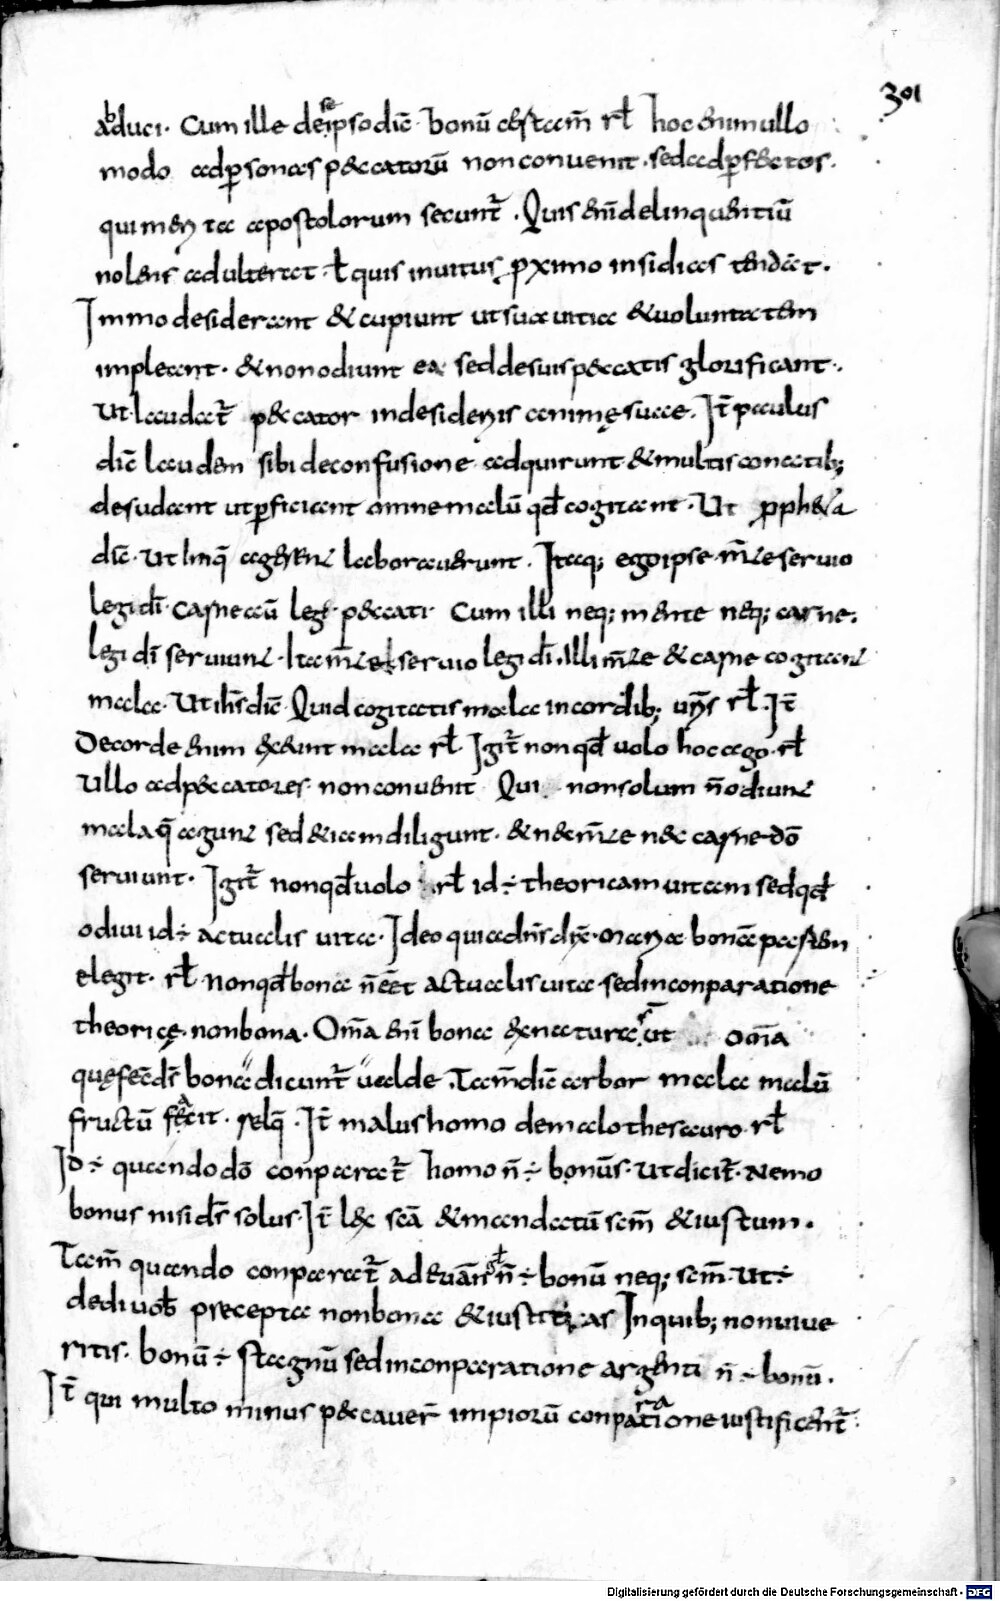 301
abduci· Cum ille de se ipso diē bonū ēst eam̄ rł hoc enim ullo
modo ad ꝑsonas peccatorū non convenit· sed ad ꝑfectos·
qui mentea apostolorum secunt̄· Quis enī delinquentiū
nolens adulteret· ł quis invitus ꝓximo insidias tendat·
Immo desiderant & cupiunt ut sua vitia & voluntatem
impleant· & non odiunt ea sed de suis peccatis glorificant·
Ut· laudat̄ peccator in desideriis animę suae· It̄ paulus
dic̄ laudem sibi de confusione adquirunt & multis conatib;
desudant ut ꝑficiant omne malū qđ cogitant· Ut ꝓpheta
dic̄· Ut iniq̄ agerent laboraverunt· Itaq; ego ipse m̄te servio
legi dī· carne aū lege peccati· Cum illi neq; mente neq; carne·
legi dī serviunt· Ita m̄te servio legi dī· Illi m̄te & carne cogitant
mala· Ut ih̄s dic̄· Quid cogitatis mala in cordib; vr̄is rł· It̄
De corde enim exeunt mala rł· Igit̄ non qđ volo hoc ago· rł
Ullo ad peccatores· non convenit Qui non solum n̄ odiunt
mala q̄ agunt sed etiam diligunt· & nec m̄te nec carne dō
serviunt· Igit̄ non qđ volo rł id ÷ theoricam vitam sed qđ
odivi id ÷ actualis vitae· Ideo qui ad dn̄s dix̄· maria bonā partem
elegit· rł· Non qđ bona n̄ eēt actualis vita sed in conparatione
theoricę· non bona· Om̄a enī bona ex natura s̄ ut om̄a
quę fecēdr̄ bona dicunt̄ valde· Tam̄ dic̄ arbor mala malū
fructū facit· relq̄· It̄ malus homo de malo thesauro· rł
Id ÷ quando dō conparat̄ homo n̄ ÷ bonūs· ut dicit̄· Nemo
bonus nisi ds̄ solus· It̄ lex scā & mandatū scm̄ & iustum·
Tam̄ quando conparat̄ ad evānḡł n̄ ÷ bonū neq; scm̄· ut ÷
dedi vob̄ precepta non bona & iustitias In quib; non vive
ritis· bonū ÷ stagnū sed in conparatione argenti n̄ ÷ bonū·
It̄ qui multo minus peccaver̄ impiorū conparatione iustificent̄·
Digitalisierung gefördert durch die Deutsche Forschungsgemeinschaft · DFG